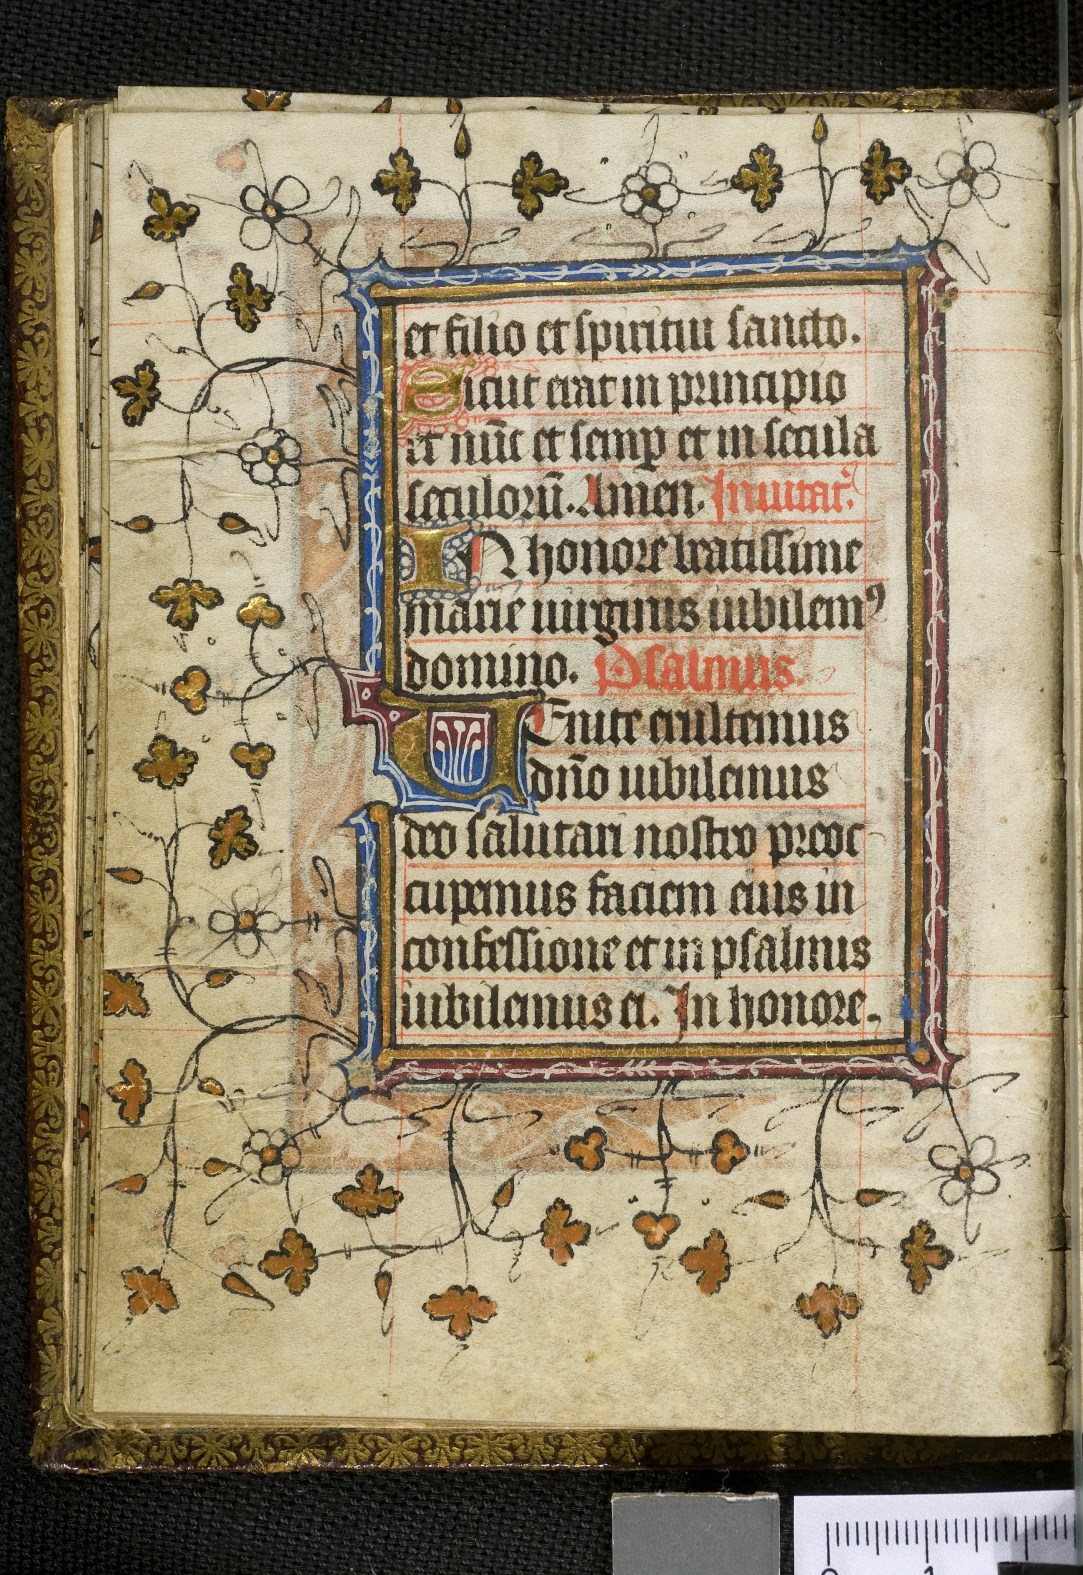 et filio et spiritui sancto.
Sicut erat in principio
et nūc et semp et in secula
seculorū. Amen. Inuitat᷒
IN honore beatissime
marie uirginis iubilemꝰ
domino. Psalmus.
UEnite exultemus
dño iubilemus
deo salutari nostro preoc
cupemus faciem eius in
confessione et in psalmis
iubilemus ei. In honore.
0 1